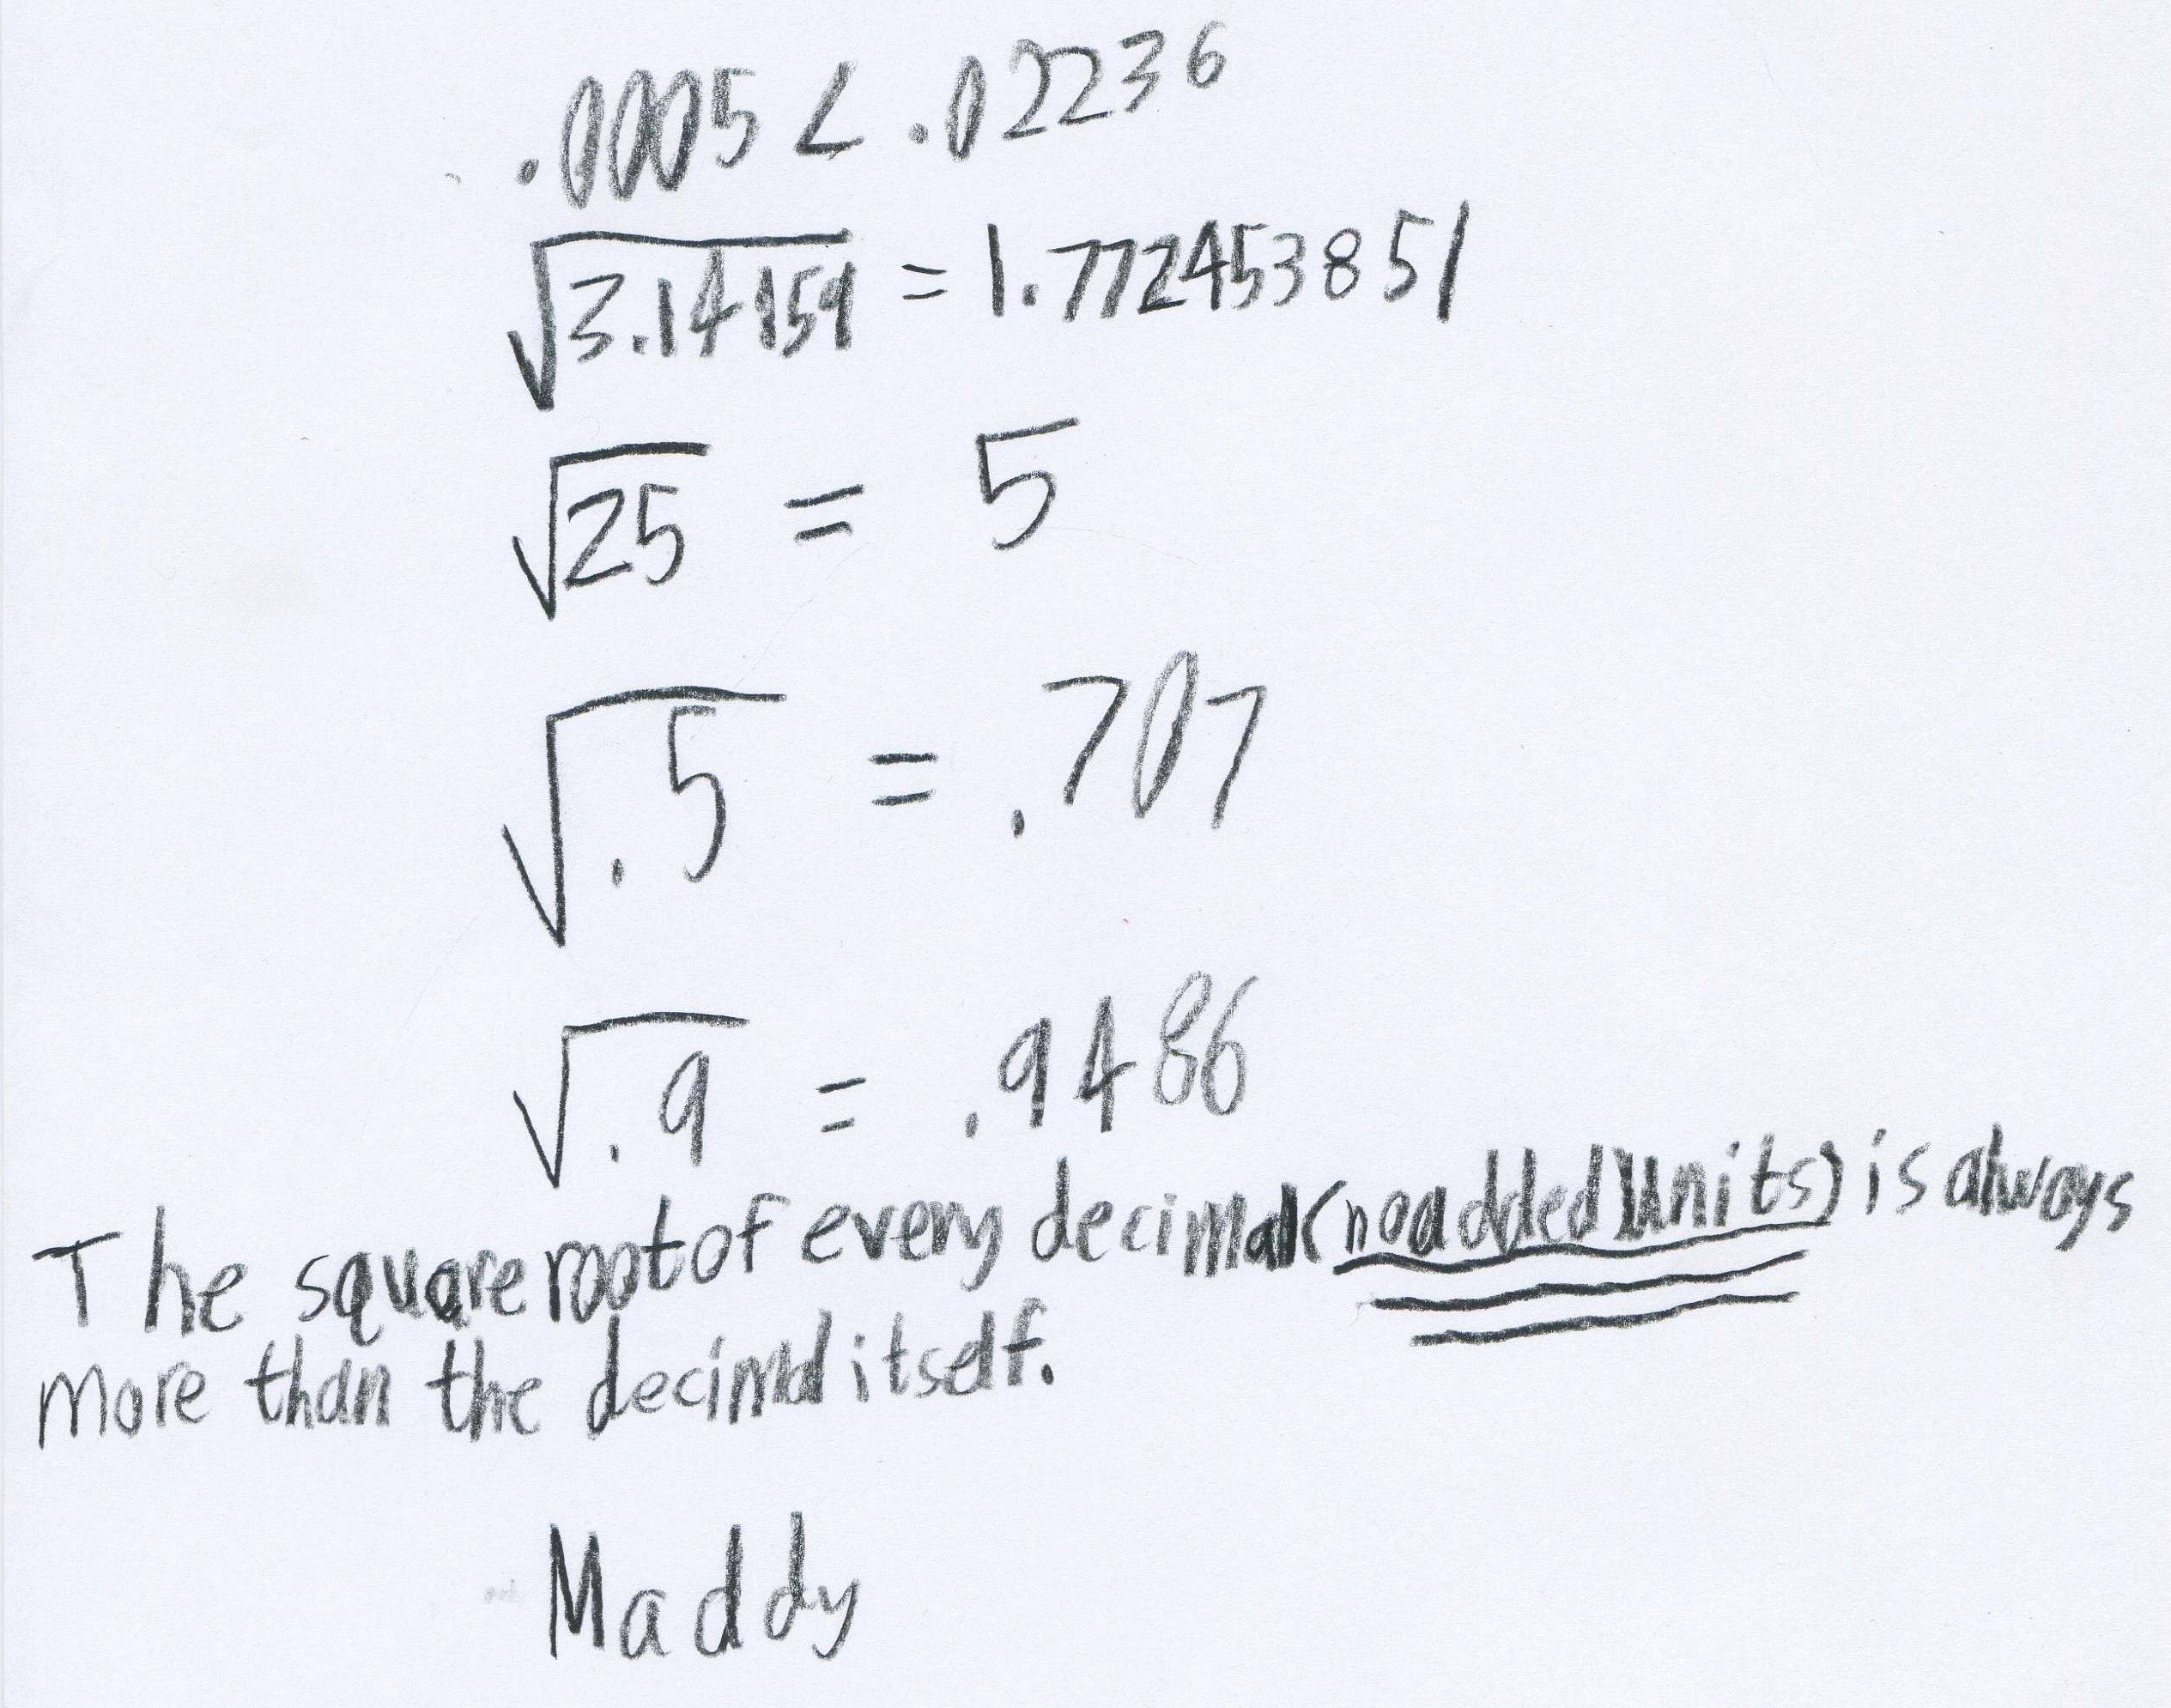 .0005 < .02236
√3.14159 = 1.772453851
√25 = 5
√.5 = .707
√.9 = .9486
The square root of every decimal (no added units) is always
more than the decimal itself.
Maddy